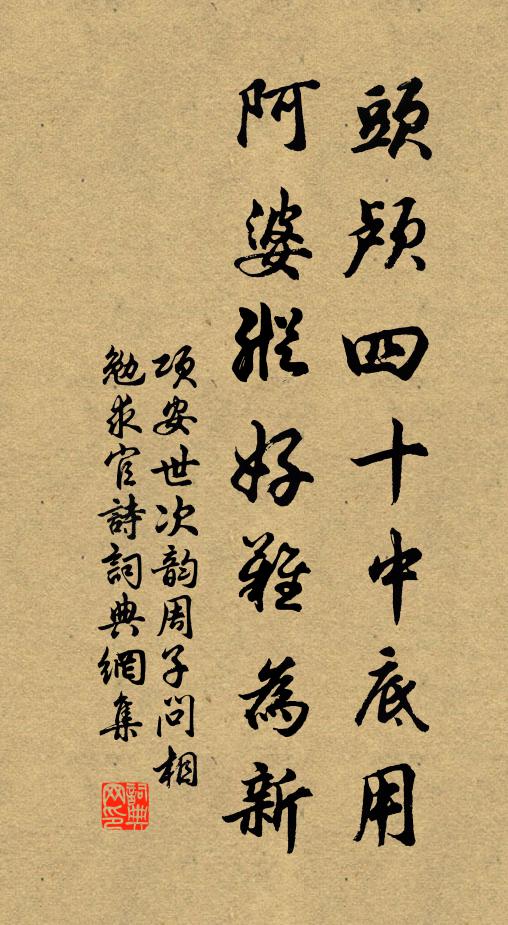 頭顱四十中底用
阿婆緃好難為新
項安世次韵周子問相
勉求官詩詞典網集
詞典网印